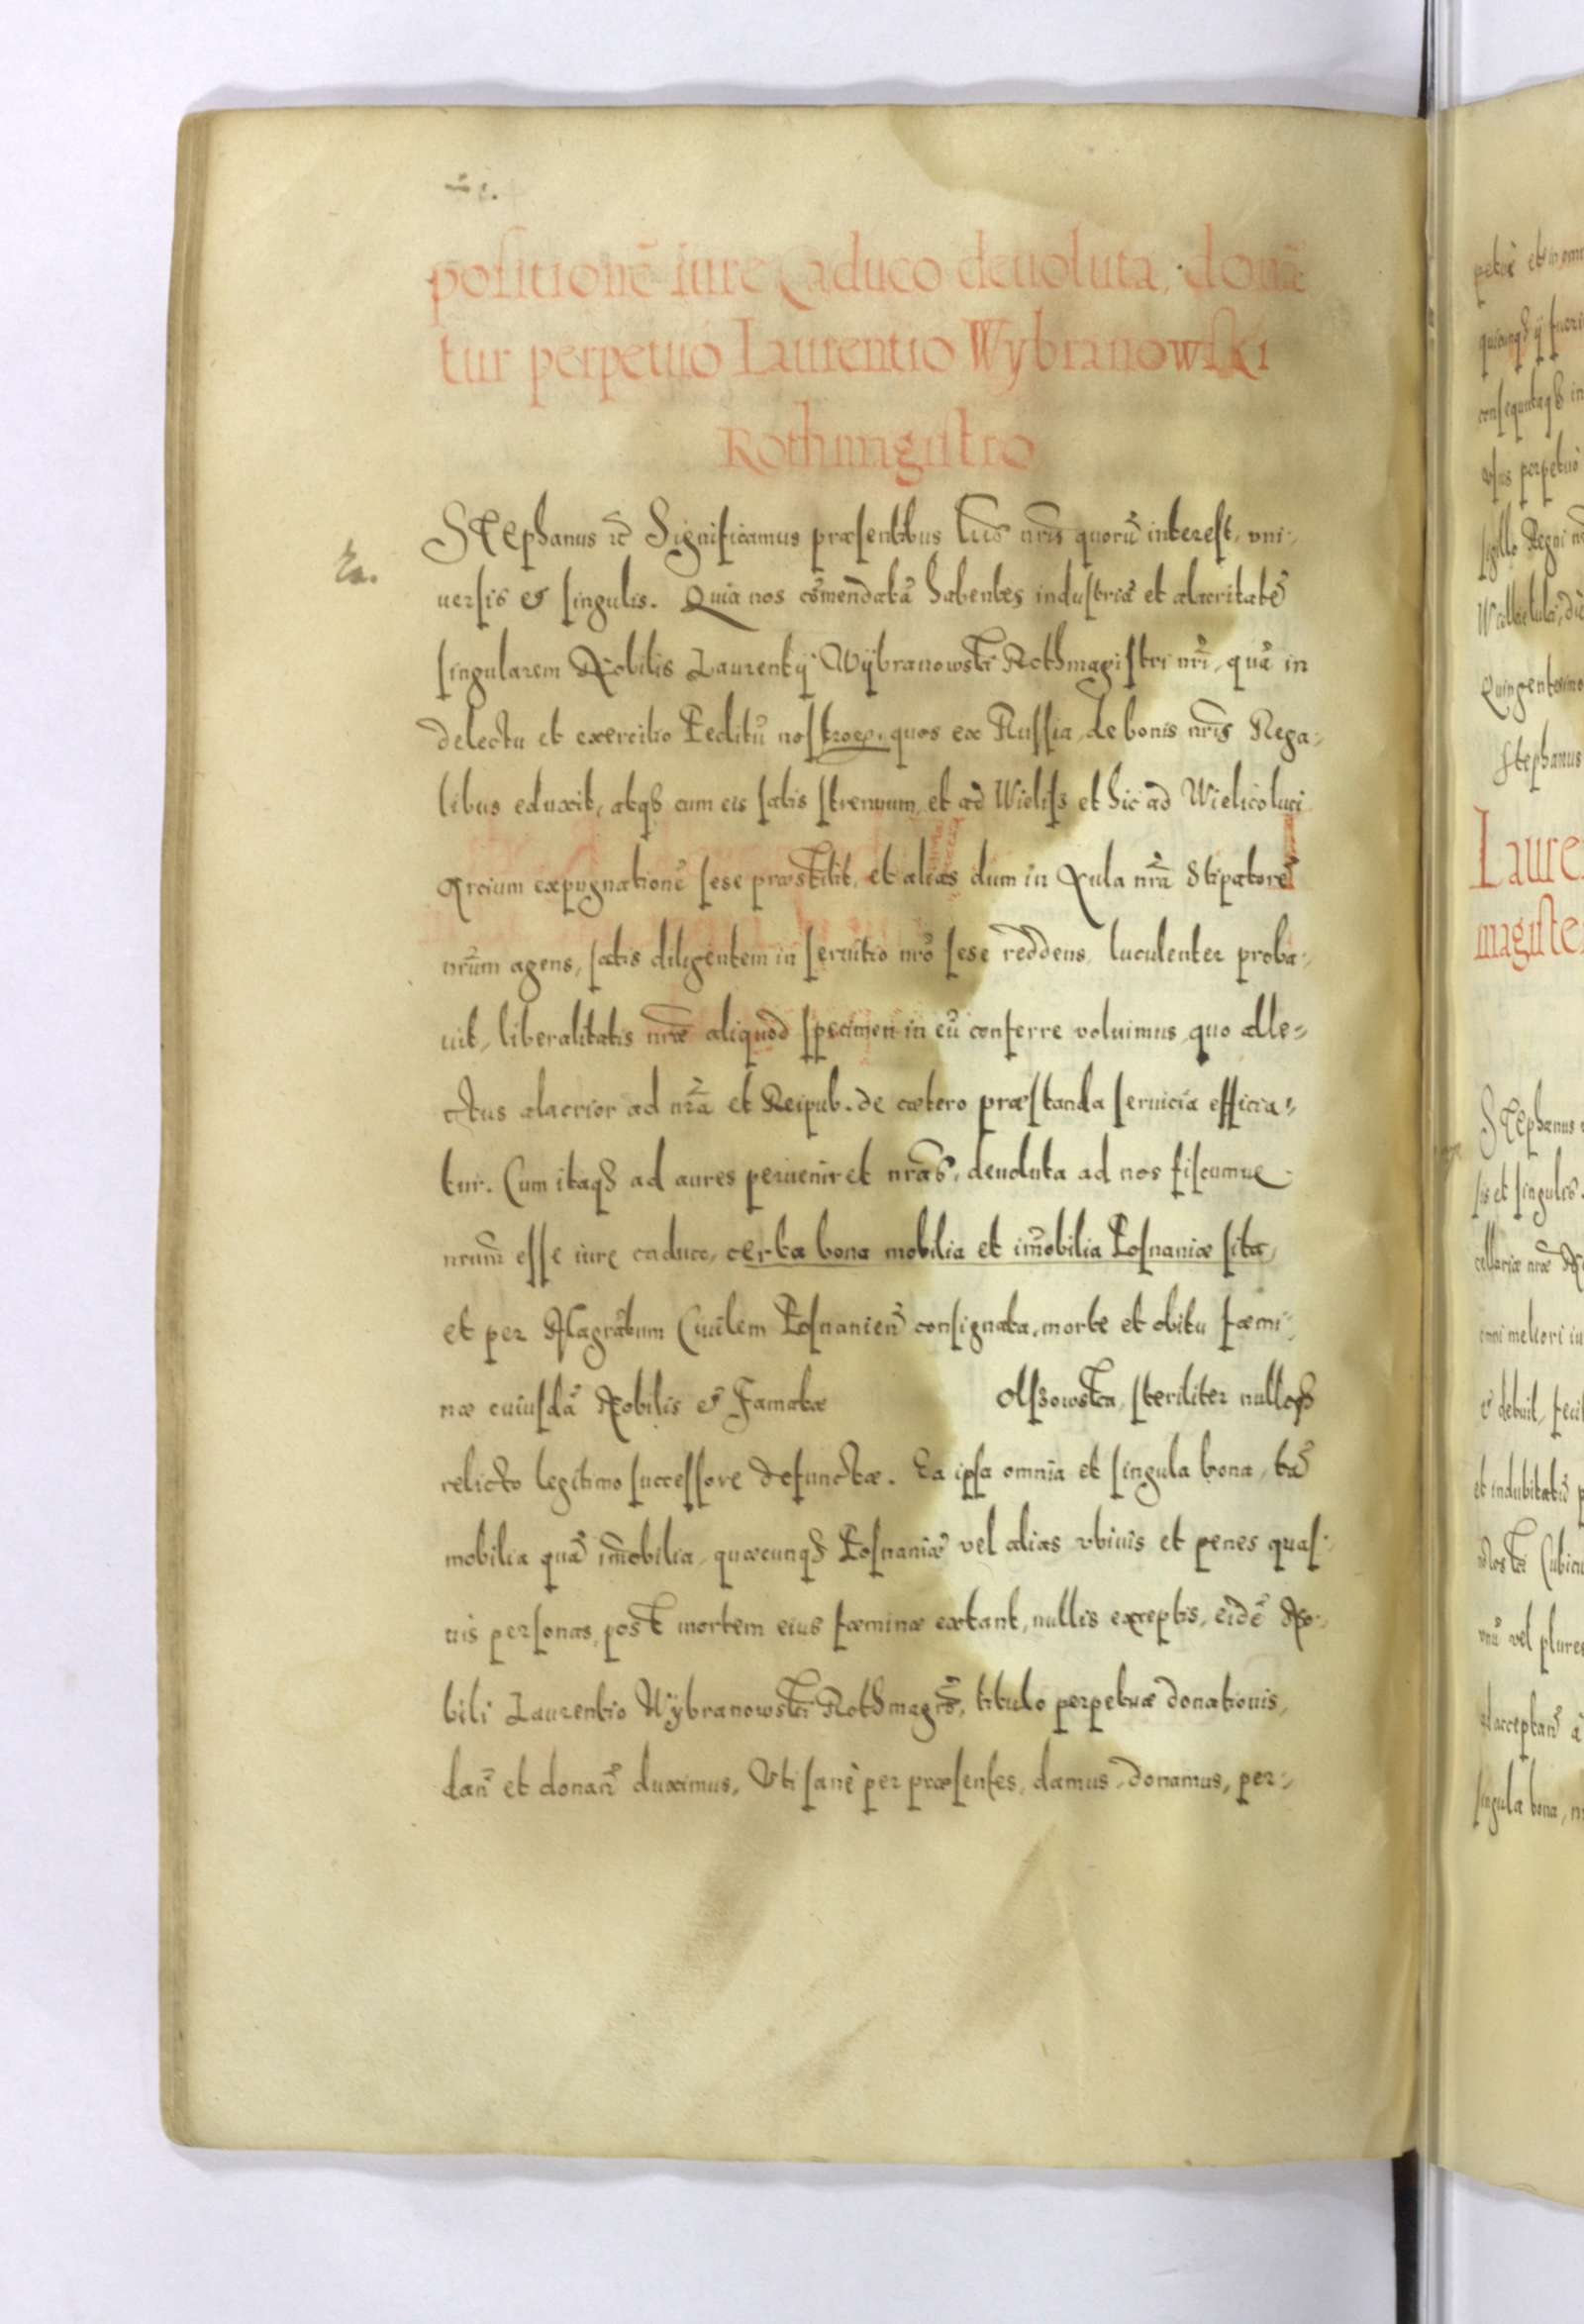 positionē iure Caduco deuoluta, donā
tur perpetuò Laurentio Wybranowski
Rothmagistro
STEphanus etc̄ Significamus præsentibus Lrīs nrīs quorū interest, vni-
uersis et singulis. Quia nos cōmendatā habentes industriā et alacritatē
singularem Nobilis Laurentÿ Wÿbranowski Rothmagistri nrī, quā in
delectu et exercitio Peditū nostrorꝝ, quos ex Russia, de bonis nrīs Rega-
libus eduxit, atqȝ cum eis satis strenuum et ad Wielisz et hic ad Wielicoluci
Arcium expugnationē sese præstitit, et alias dum in Aula nrā Stipatorē
nrūm agens, satis diligentem in seruitio nrō sese reddens, luculenter proba-
uit, liberalitatis nrǣ aliquod specimen in eū conferre voluimus, quo alle-
ctus alacrior ad nrā et Reipub. de cætero præstanda seruicia efficia-
tur. Cum itaqȝ ad aures perueniret nrās, deuoluta ad nos fiscumue
nrum̄ esse iure caduco, certa bona mobilia et im̄obilia Posnaniæ sita,
et per Magrātum Ciuilem Posnanien̄ consignata, morte et obitu fœmi-
næ cuiusdā Nobilis et Famatæ Olszowska, steriliter nulloqȝ
relicto legitimo successore defunctæ. Ea ipsa omnia et singula bona, tā
mobilia quā im̄obilia, quæcunqȝ Posnaniæ vel alias vbiuis et penes quas-
uis personas, post mortem eius fœminæ extant, nullis exceptis, eidē No-
bili Laurentio Wÿbranowski Rothmagrō, titulo perpetuæ donationis,
dan̄ et donan̄ duximus, Vti sanè per præsentes, damus, donamus, per-
Laure
magiste
STEphanus